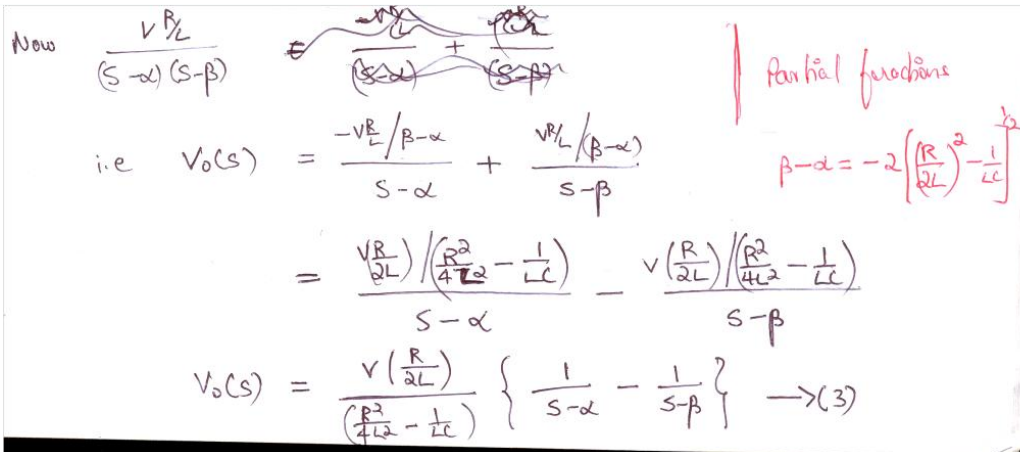 Now V R/L / (S-α)(S-β) =
Partial fractions
i.e V₀(s) = -VR/L / β-α / S-α + VR/L / (β-α) / S-β
β-α = -2 [(R/2L)² - 1/LC]^1/2
= VR/2L) / (R²/4L² - 1/LC) / S-α - V(R/2L) / (R²/4L² - 1/LC) / S-β
V₀(s) = V(R/2L) / (R²/4L² - 1/LC) { 1/S-α - 1/S-β } →(3)